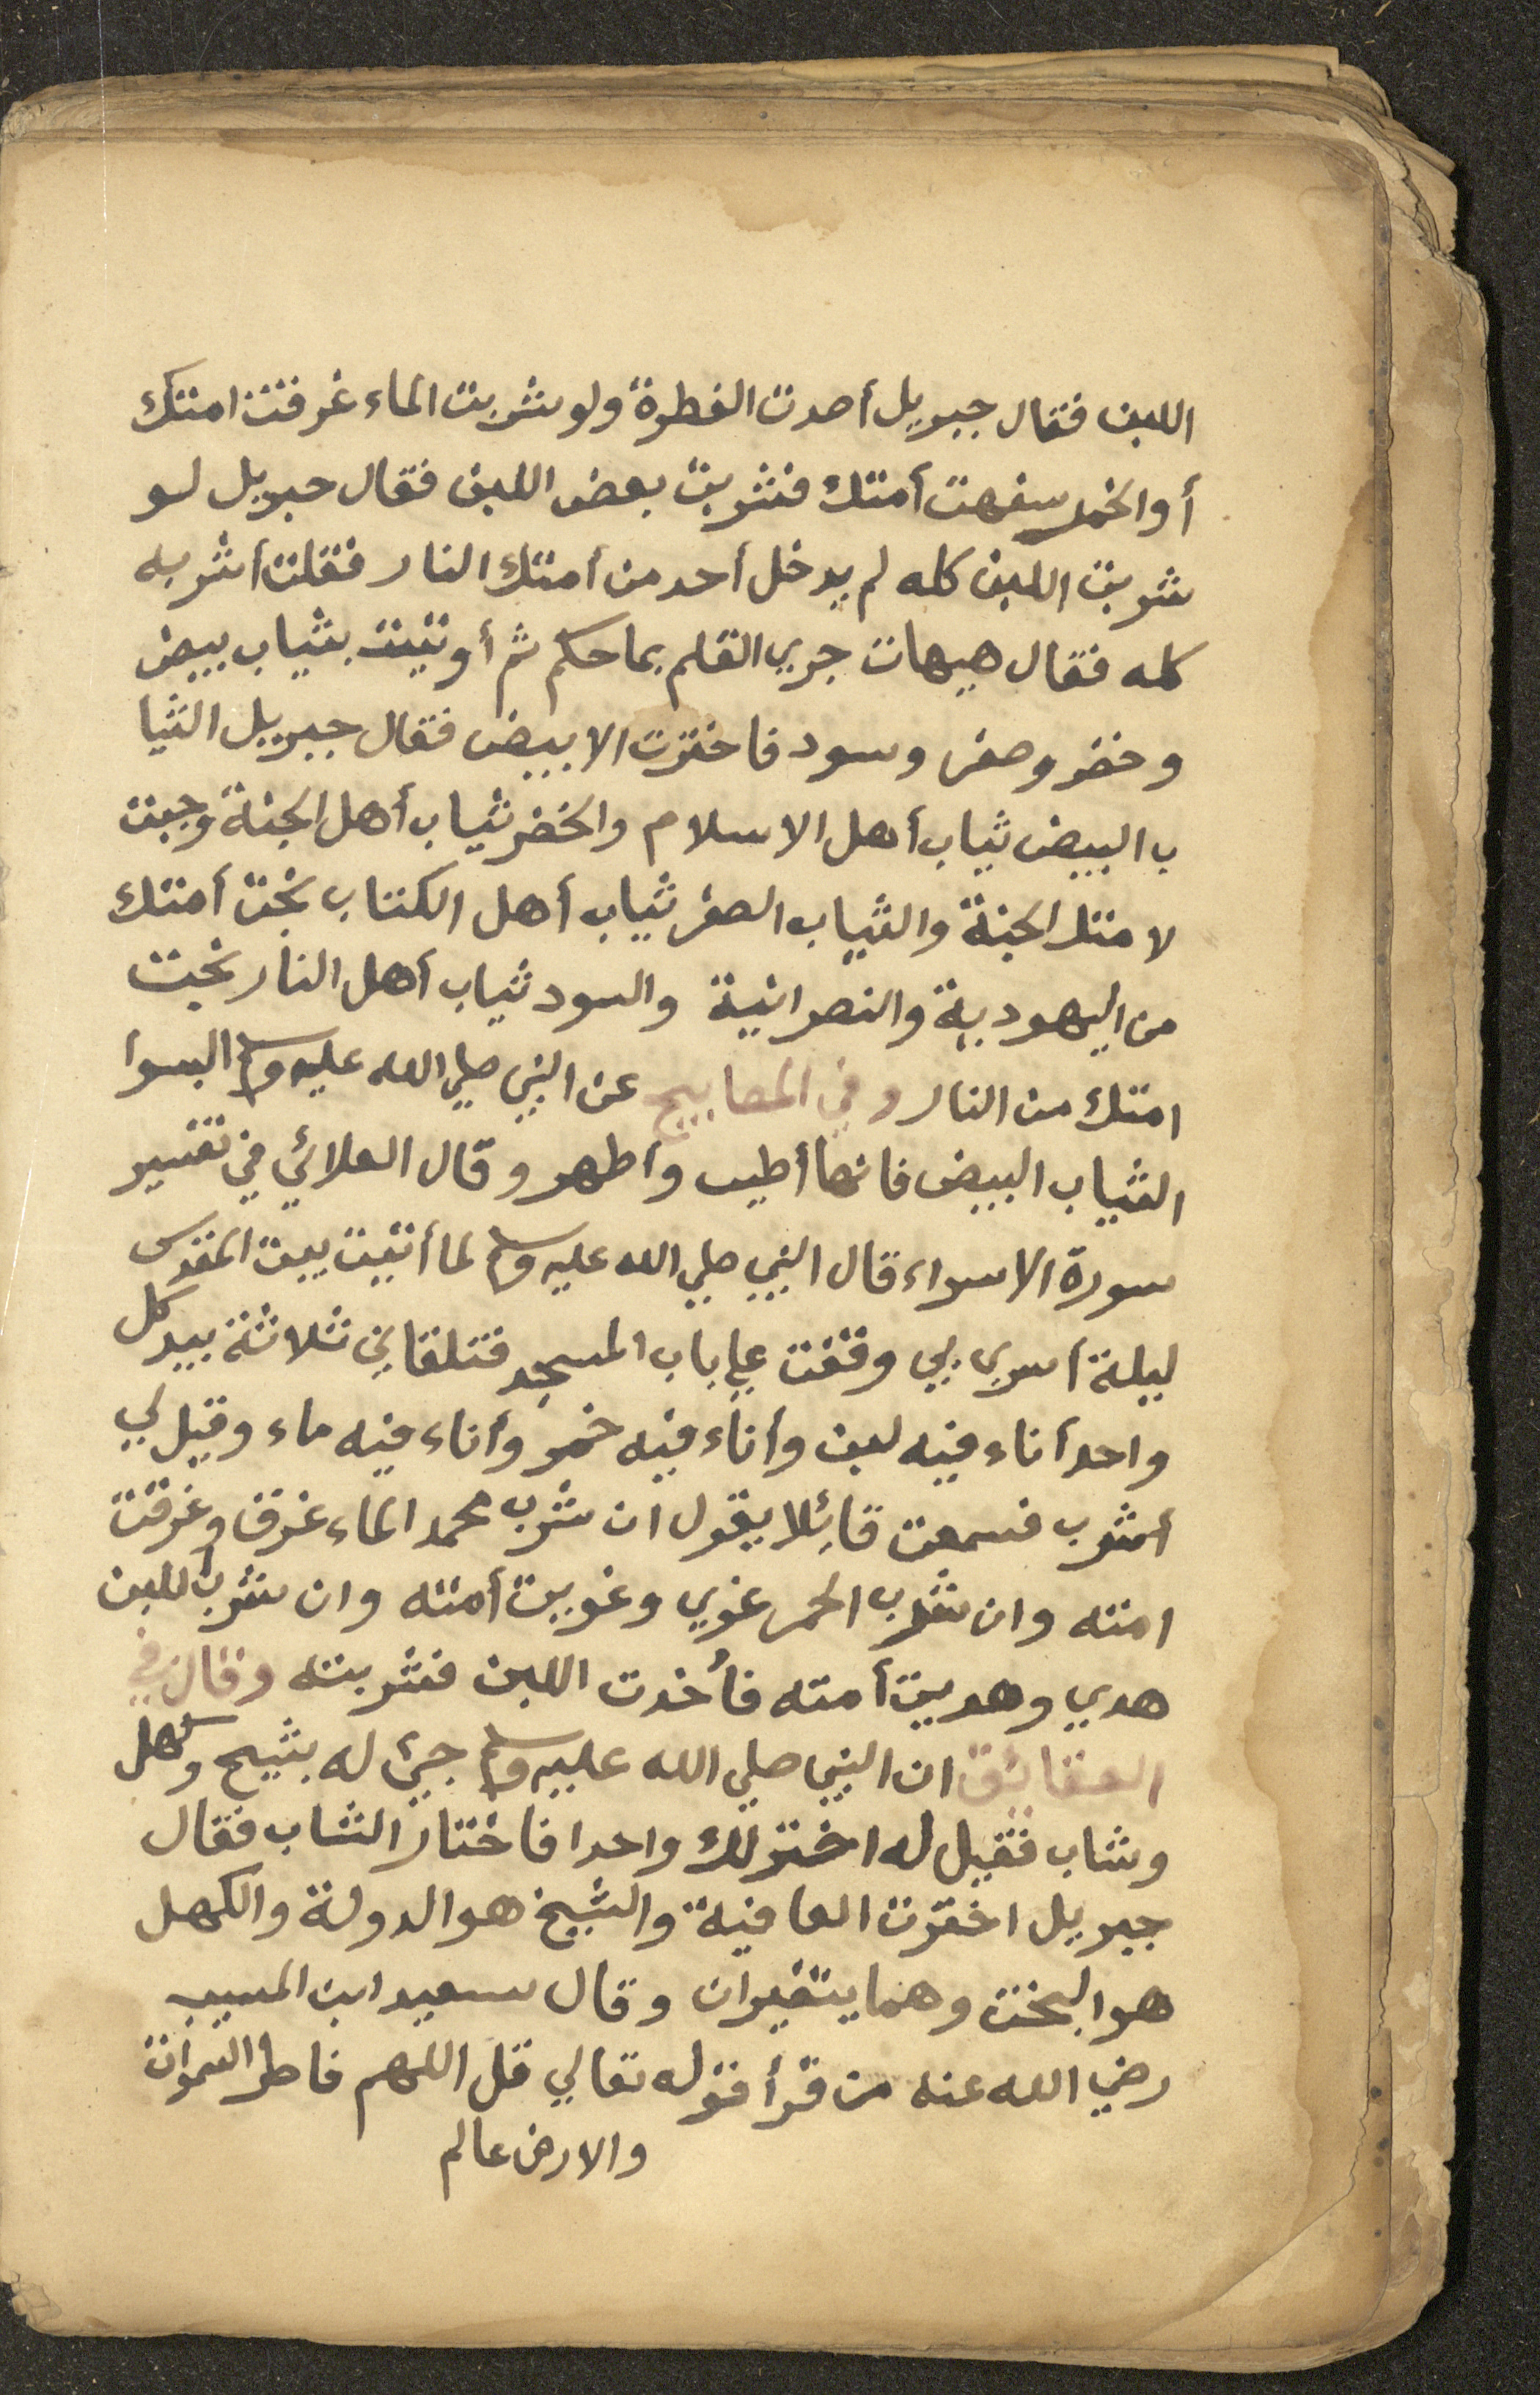 اللبن فقال جبريل أصدت الفطرة ولو شربت الماء غرقت امتك
أو الخمر سفهت أمتك فشربت بعض اللبن فقال جبريل لو
شربت اللبن كله لم يدخل أحد من أمتك النار فقلت أشربه
كله فقال هيهات جري القلم بما حكم ثم أوتيت بثياب بيض
وخضر وصفر وسود فاخترت الابيض فقال جبريل الثيا
ب البيض ثياب أهل الاسلام والخضر ثياب أهل الجنة وجبت
لامتك الجنة والثياب الصفر ثياب أهل الكتاب نجت أمتك
من اليهودية والنصرانية والسود ثياب أهل النار نجت
امتك من النار وفي المصابيح عن النبي صلي الله عليه وسلم البسوا
الثياب البيض فانها أطيب واطهر وقال العلائي في تفسير
سورة الاسراء قال النبي صلي الله عليه وسلم لما أتيت بيت المقدس
ليلة أسري بي وقفت علي باب المسجد فتلقاني ثلاثة بيد كل
واحد أناء فيه لبن وأناء فيه خمر وأناء فيه ماء وقيل لي
أشرب فسمعت قائلا يقول ان شرب محمد الماء غرق وغرقت
امته وان شرب الخمر غوي وغويت أمته وان شرب اللبن
هدي وهديت أمته فأخدت اللبن فشربته وقال في
العقائق ان النبي صلي الله عليه وسلم جئ له بشيخ وكهل
وشاب فقيل له اختر لك واحدا فاختار الشاب فقال
جبريل اخترت العافية والشيخ هو الدولة والكهل
هو البخت وهما يتغيران وقال سعيد ابن المسيب
رضي الله عنه من قرأ قوله تعالي قل اللهم فاطر السموات
والارض عالم